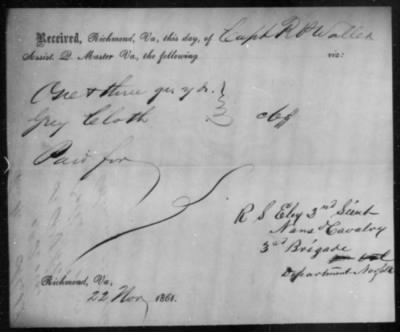 Received, Richmond, Va, this day, of Capt R P Waller
Assist. Q. Master Va, the following viz:
One & three qr yds
Grey Cloth
Paid for
R S Ely 3rd Lieut
Cavalry
3rd Brigade
Department Norfolk
Richmond, Va.
22 Nov 1861.